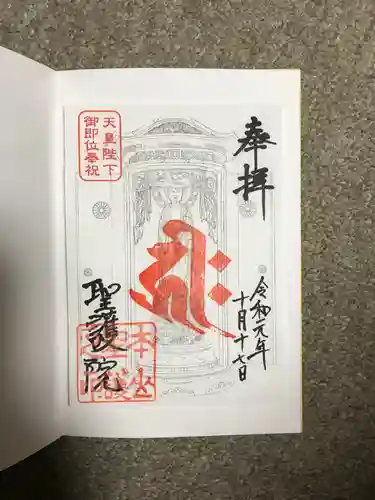 奉拝
令和元年
十月十七日
天皇陛下
御即位奉祝
聖護院